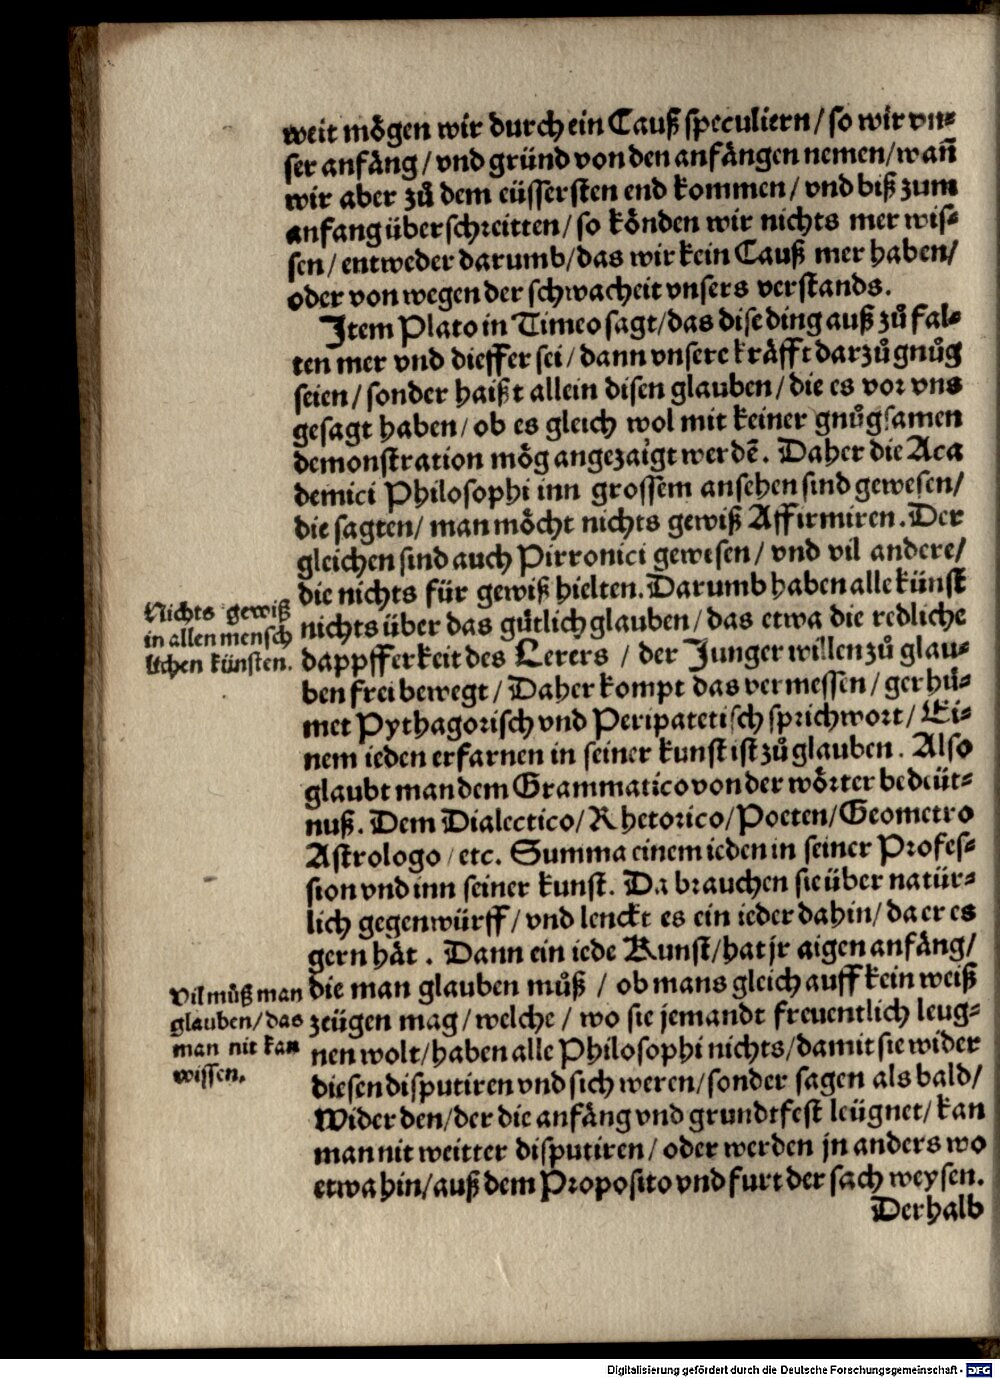 weit mögen wir durch ein Cauß speculiern / so wir vn⸗
ser anfäng / vnd gründ von den anfängen nemen / wañ
wir aber zů dem eüssersten end kommen / vnd biß zum
anfang überschreitten / so könden wir nichts mer wis⸗
sen / entweder darumb / das wir kein Cauß mer haben /
oder von wegen der schwacheit vnsers verstands.
Item Plato in Timeo sagt / das dise ding auß zů fal⸗
ten mer vnd dieffer sei / dann vnsere kräfft darzů gnůg
seien / sonder haißt allein disen glauben / die es vor vns
gesagt haben / ob es gleich wol mit keiner gnůgsamen
demonstration mög angezaigt werdẽ. Daher die Aca
demici Philosophi inn grossem ansehen sind gewesen /
die sagten / man möcht nichts gewiß Affirmiren. Der
gleichen sind auch Pirronici gewesen / vnd vil andere /
die nichts für gewiß hielten. Darumb haben alle künst
nichts über das gütlich glauben / das etwa die redliche
dappfferkeit des Lerers / der Junger willen zů glau⸗
ben frei bewegt / Daher kompt das vermessen / gerhů⸗
met Pythagorisch vnd Peripatetisch sprichwort / Ei⸗
nem ieden erfarnen in seiner kunst ist zů glauben. Also
glaubt man dem Grammatico von der wörter bedeüt⸗
nuß. Dem Dialectico / Rhetorico / Poeten / Geometro
Astrologo / etc. Summa einem ieden in seiner Profes⸗
sion vnd inn seiner kunst. Da brauchen sie über natür⸗
lich gegenwürff / vnd lenckt es ein ieder dahin / da er es
gern hät. Dann ein iede Kunst / hat jr aigen anfäng /
die man glauben můß / ob mans gleich auff kein weiß
zeügen mag / welche / wo sie jemandt freuentlich leug⸗
nen wolt / haben alle Philosophi nichts / damit sie wider
diesen disputiren vnd sich weren / sonder sagen als bald /
Wider den / der die anfäng vnd grundtfest leügnet / kan
man nit weitter disputiren / oder werden jn anders wo
etwa hin / auß dem Proposito vnd furt der sach weysen.
Derhalb
Nichts gewiß
in allen mensch
lichen künsten.
Vil můß man
glauben / das
man nit kan
wissen.
Digitalisierung gefördert durch die Deutsche Forschungsgemeinschaft - DFG